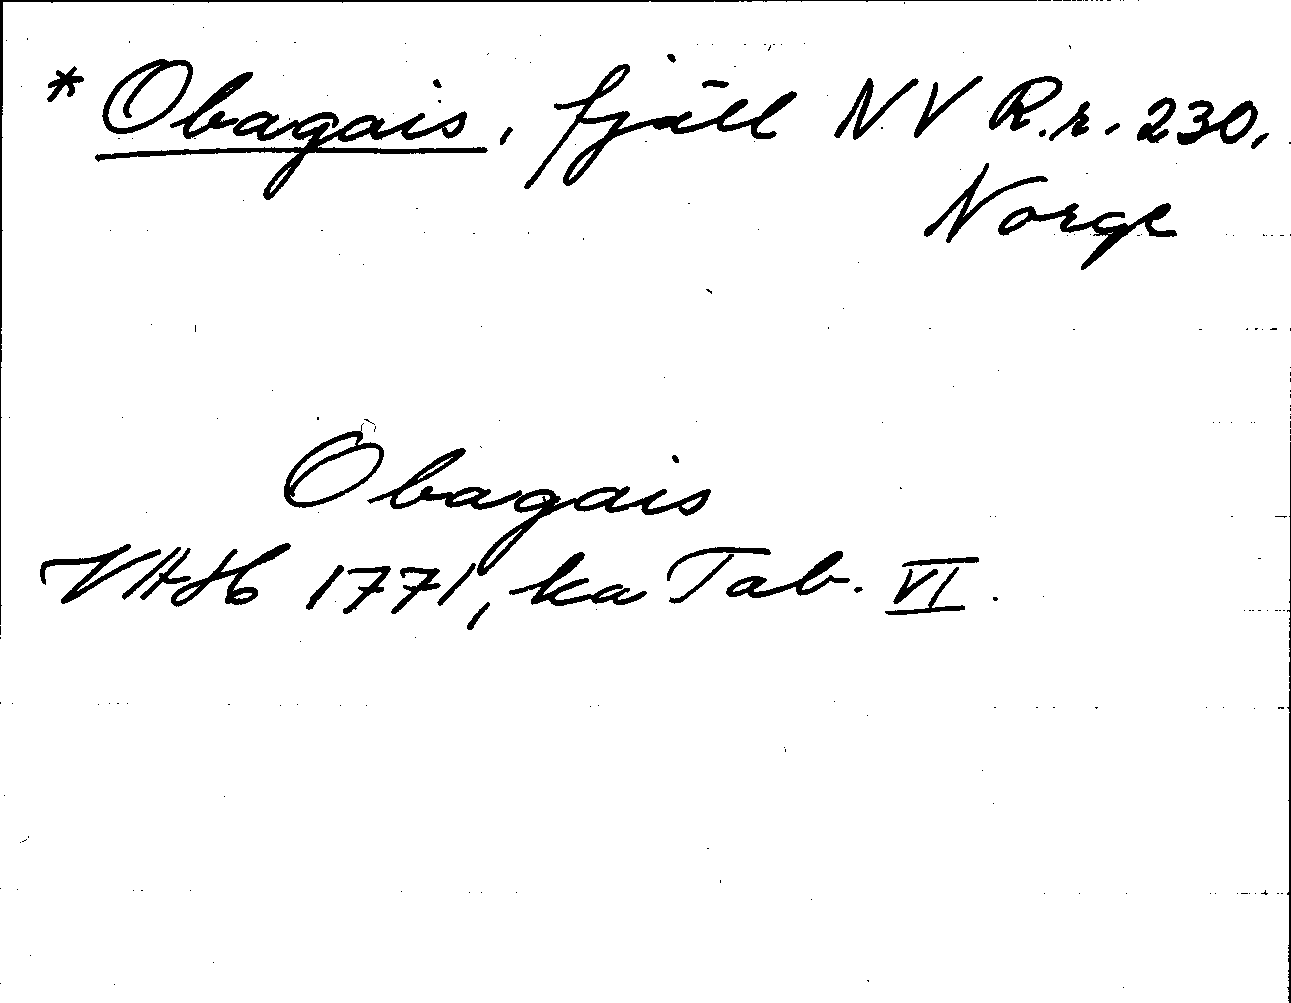 * Obagais, fjäll NV R.r. 230,
Norge
Obagais
VAH 1771, ka Tab. VI.